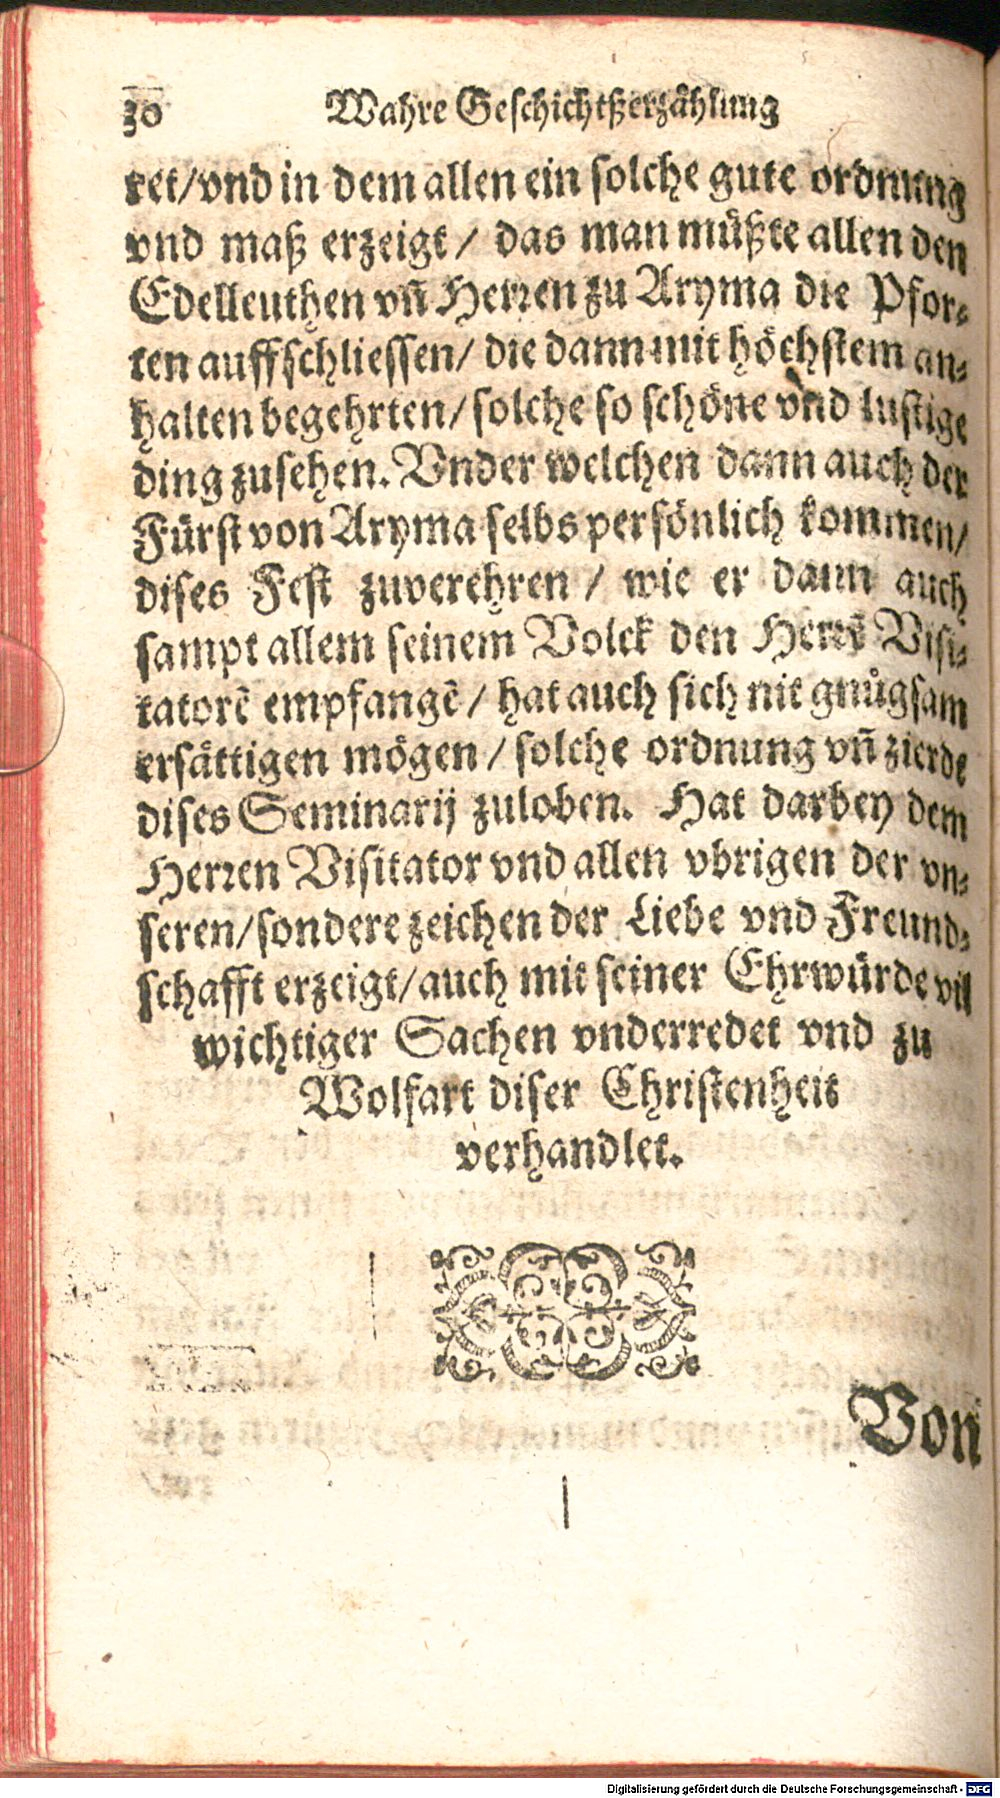 30 Wahre Geschichtßerzählung
ret/vnd in dem allen ein solche gute ordnung
vnd maß erzeigt / das man müßte allen den
Edelleuthen vñ Herren zu Aryma die Pfor-
ten auffschliessen/ die dann mit höchstem an-
halten begehrten/ solche so schöne vnd lustige
ding zusehen. Vnder welchen dann auch der
Fürst von Aryma selbs persönlich kommen/
dises Fest zuverehren / wie er dann auch
sampt allem seinem Volck den Herrẽ Visi-
tatorẽ empfangẽ / hat auch sich nit gnůgsam
ersättigen mögen / solche ordnung vñ zierde
dises Seminarij zuloben. Hat darbey dem
Herren Visitator vnd allen vbrigen der vn-
seren/sondere zeichen der Liebe vnd Freund-
schafft erzeigt/auch mit seiner Ehrwürde vil
wichtiger Sachen vnderredet vnd zu
Wolfart diser Christenheit
verhandlet.
Von
Digitalisierung gefördert durch die Deutsche Forschungsgemeinschaft - DFG